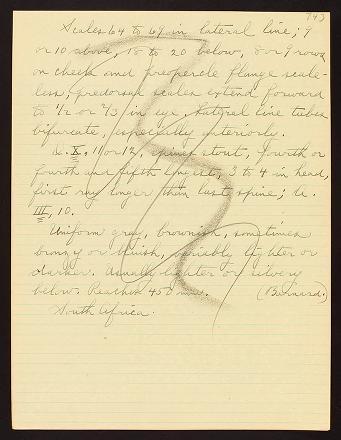 743
Scales 64 to 69 in lateral line; 9
or 10 above, 18 to 20 below, 8 or 9 rows
on cheek and preopercle flange scale-
less; predorsal scales extend forward
to 1/2 or 2/3 in eye, lateral line tubes
bifurcate, especially anteriorly.
D. X, 11 or 12, spines stout, fourth or
fourth and fifth longest, 3 to 4 in head,
first ray longer than last spine; A.
III, 10.
Uniform gray, brownish, sometimes
bronzy or bluish, variably lighter or
darker. Usually lighter or silvery
below. Reaches 450 mm. (Barnard.)
South Africa.